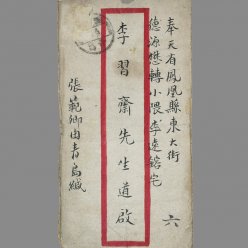 奉天省鳳凰縣東大街
德源懋轉小隈李遠銘宅
李習齋先生道啟
張範卿由青島緘
六